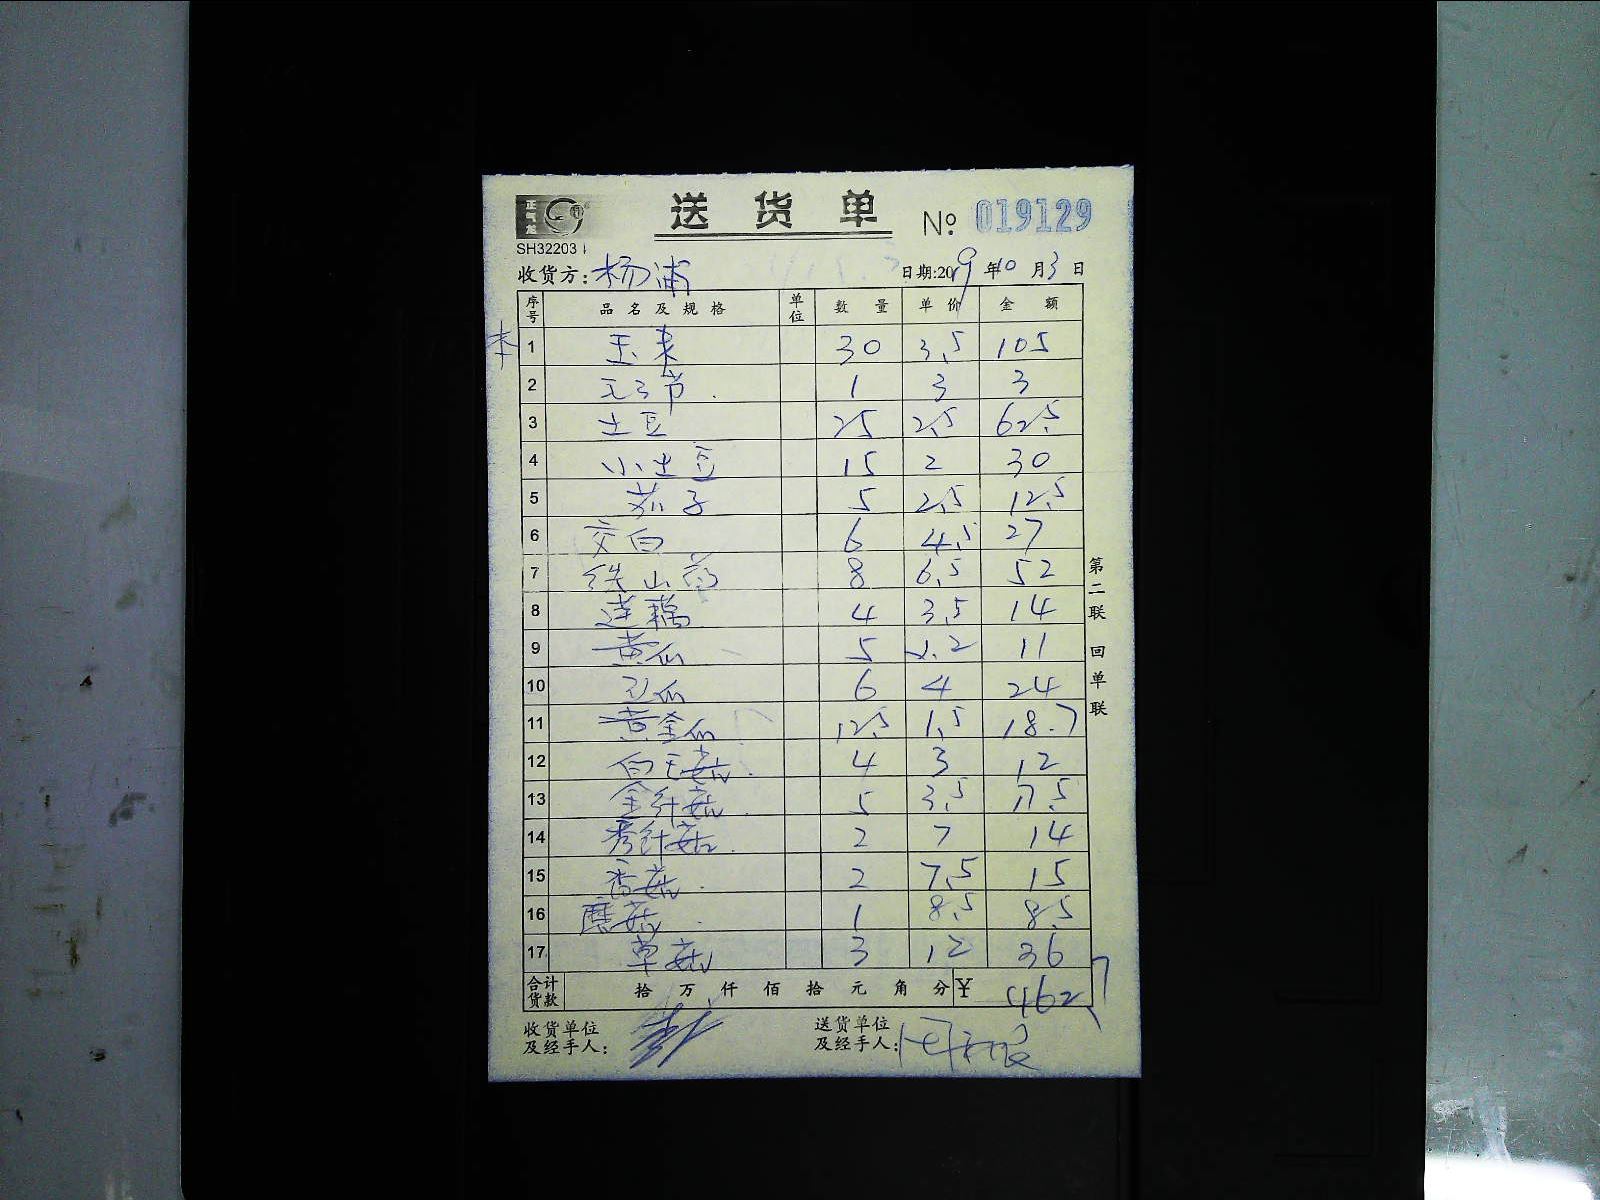 正气龙
送 货 单 No: 019129
SH32203
收货方: 杨浦 日期:2019年10月3日
序号 品名及规格 单位 数量 单价 金额
1 玉米 30 3.5 105
2 1 3 3
3 土豆 25 2.5 62.5
4 小土豆 15 2 30
5 茄子 5 2.5 12.5
6 交白 6 4.5 27
7 铁山药 8 6.5 52
8 莲藕 4 3.5 14
9 黄瓜 5 2.2 11
10 瓜 6 4 24
11 黄金瓜 12.5 1.5 18.7
12 白玉菇 4 3 12
13 金针菇 5 3.5 17.5
14 秀针菇 2 7 14
15 香菇 2 7.5 15
16 磨菇 1 8.5 8.5
17 草菇 3 12 36
合计货款 拾 万 仟 佰 拾 元 角 分 ¥ 462.7
收货单位及经手人:
送货单位及经手人:
第二联 回单联